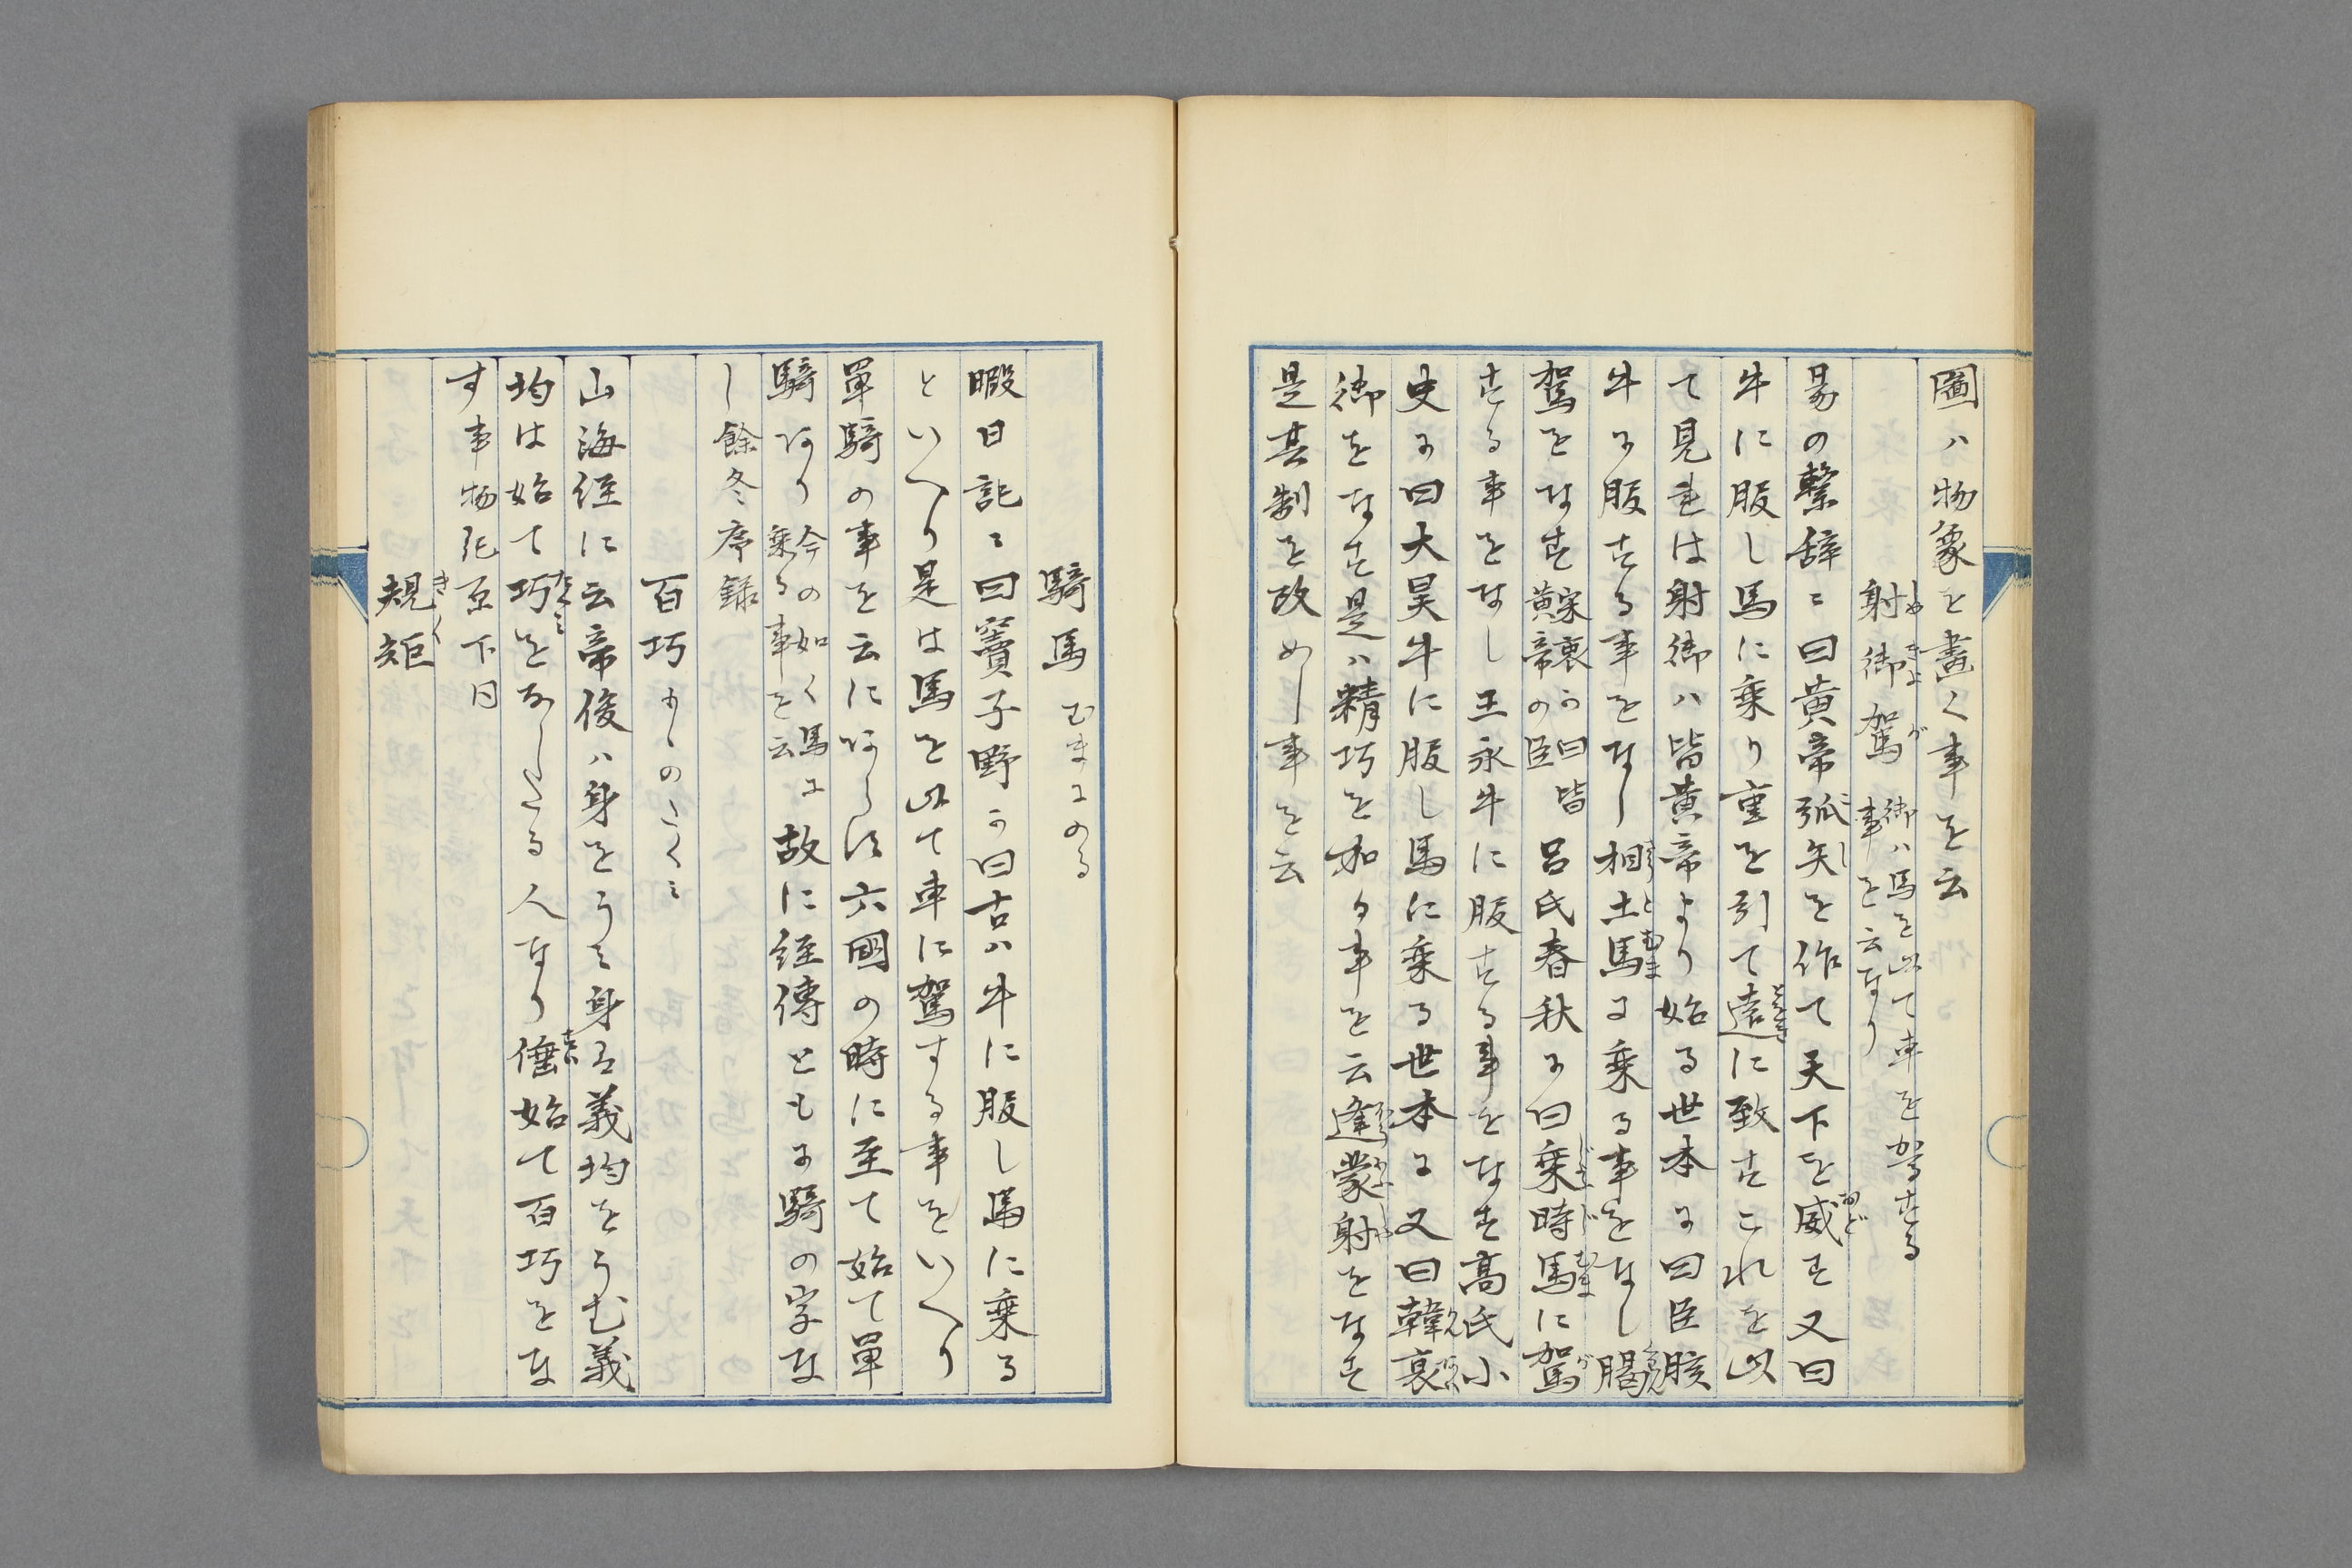 圖ハ物象を畫く事を云
射御駕 御ハ馬を以て車を駕する事を云なり
易の繋辞ニ曰黄帝弧矢を作て天下を威す又曰
牛に服し馬に乗り重を引て遠に致すこれを以
て見れは射御ハ皆黄帝より始る世本に曰臣胲
牛に服する事をなし相土馬に乗る事をなし䐧
駕をなす 宋衷か曰皆黄帝の臣 呂氏春秋に曰乗時馬に駕
する事をなし王氷牛に服する事をなす高氏小
史に曰大昊牛に服し馬に乗る世本に又曰韓哀
御をなす是ハ精巧を加る事を云逢蒙射をなす
是其制を改めし事を云
騎馬 むまにのる
暇日記ニ曰竇子野か曰古ハ牛に服し馬に乗る
といへり是は馬を以て車に駕する事をいへり
單騎の事を云にあらす六國の時に至て始て單
騎あり 今の如く馬に乗る事を云 故に経傳ともに騎の字な
し餘冬序録
百巧 もゝのたくミ
山海経に云帝俊ハ身をうミ身ハ義均をうむ義
均は始て巧をなしたる人なり倕始て百巧をな
す事物紀原下同
規矩